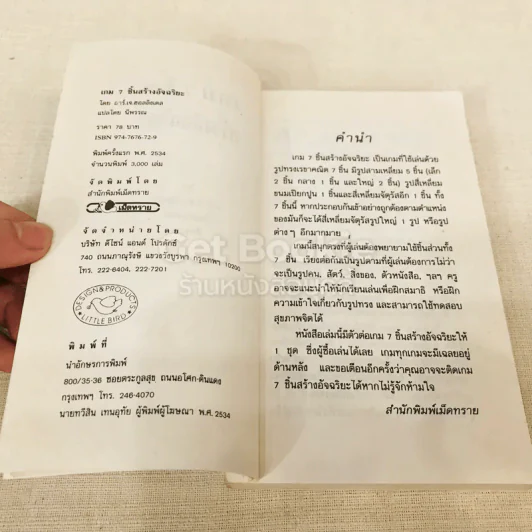 เกม 7 ชิ้นสร้างอัจฉริยะ
โดย อาร์.เจ.ฮอลลิงเดล
แปลโดย นิพรรณ
ราคา 78 บาท
ISBN 974-7676-72-9
พิมพ์ครั้งแรก พ.ศ. 2534
จำนวนพิมพ์ 3,000 เล่ม
จัดพิมพ์โดย
สำนักพิมพ์เม็ดทราย
เม็ดทราย
จัดจำหน่ายโดย
บริษัท ดีไซน์ แอนด์ โปรดักซ์
740 ถนนภาณุรังษี แขวงวังบูรพา กรุงเทพฯ 10200
โทร. 222-6404, 222-7201
DESIGN & PRODUCTS
LITTLE BIRD
พิมพ์ที่
นำอักษรการพิมพ์
800/35-36 ซอยตระกูลสุข ถนนอโศก-ดินแดง
กรุงเทพฯ โทร. 246-4070
นายทวีสิน เทนอุทัย ผู้พิมพ์ผู้โฆษณา พ.ศ. 2534
คำนำ
เกม 7 ชิ้นสร้างอัจฉริยะ เป็นเกมที่ใช้เล่นด้วย
รูปทรงเรขาคณิต 7 ชิ้น มีรูปสามเหลี่ยม 5 ชิ้น (เล็ก
2 ชิ้น กลาง 1 ชิ้น และใหญ่ 2 ชิ้น) รูปสี่เหลี่ยม
ขนมเปียกปูน 1 ชิ้นและสี่เหลี่ยมจัตุรัสอีก 1 ชิ้น ทั้ง
7 ชิ้นนี้ หากประกอบกันเข้าอย่างถูกต้องตามตำแหน่ง
ของมันก็จะได้สี่เหลี่ยมจัตุรัสรูปใหญ่ 1 รูป หรือรูป
ต่างๆ อีกมากมาย
เกมนี้สนุกตรงที่ผู้เล่นต้องพยายามใช้ชิ้นส่วนทั้ง
7 ชิ้น เรียงต่อกันเป็นรูปตามที่ผู้เล่นต้องการไม่ว่า
จะเป็นรูปคน, สัตว์, สิ่งของ, ตัวหนังสือ, ฯลฯ ครู
อาจจะแนะนำให้นักเรียนเล่นเพื่อฝึกสมาธิ หรือฝึก
ความเข้าใจเกี่ยวกับรูปทรง และสามารถใช้ทดสอบ
สุขภาพจิตได้
หนังสือเล่มนี้มีตัวต่อเกม 7 ชิ้นสร้างอัจฉริยะให้
1 ชุด ซึ่งผู้ซื้อเล่นได้เลย เกมทุกเกมจะมีเฉลยอยู่
ด้านหลัง และขอเตือนอีกครั้งว่าคุณอาจจะติดเกม
7 ชิ้นสร้างอัจฉริยะได้หากไม่รู้จักห้ามใจ
สำนักพิมพ์เม็ดทราย